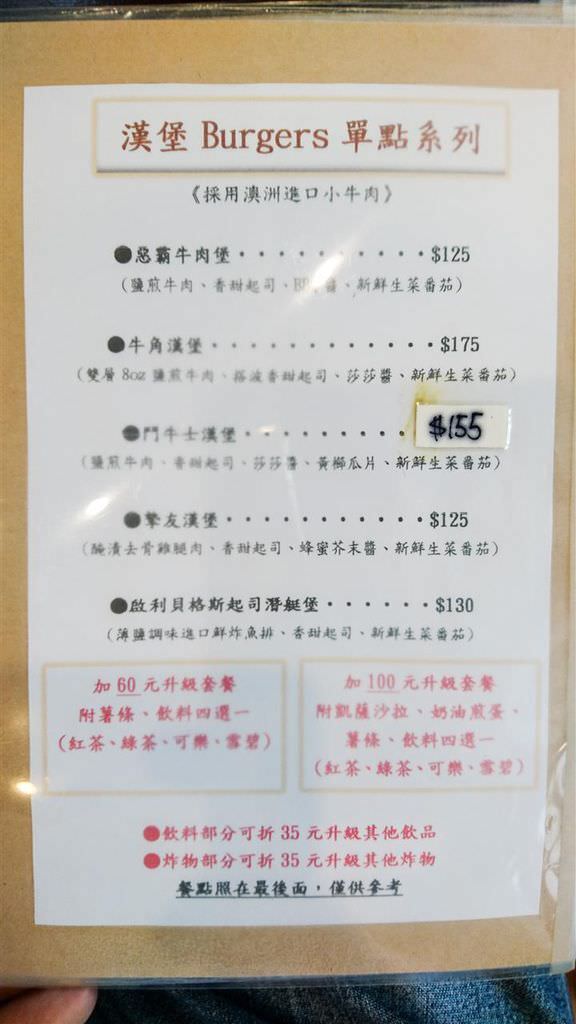 漢堡 Burgers 單點系列
《採用澳洲進口小牛肉》
●惡霸牛肉堡・・・・・・・・・・・$125
(鹽煎牛肉、香甜起司、醬、新鮮生菜番茄)
●牛角漢堡・・・・・・・・・・・・$175
(雙層 8oz 鹽煎牛肉、搭波香甜起司、莎莎醬、新鮮生菜番茄)
●鬥牛士漢堡・・・・・・・・・・$155
(鹽煎牛肉、香甜起司、莎莎醬、黃櫛瓜片、新鮮生菜番茄)
●摯友漢堡・・・・・・・・・・・・$125
(醃漬去骨雞腿肉、香甜起司、蜂蜜芥末醬、新鮮生菜番茄)
●啟利貝格斯起司潛艇堡・・・・・・$130
(薄鹽調味進口鮮炸魚排、香甜起司、新鮮生菜番茄)
加 60 元升級套餐
附薯條、飲料四選一
(紅茶、綠茶、可樂、雪碧)
加 100 元升級套餐
附凱薩沙拉、奶油煎蛋、
薯條、飲料四選一
(紅茶、綠茶、可樂、雪碧)
●飲料部分可折 35 元升級其他飲品
●炸物部分可折 35 元升級其他炸物
餐點照在最後面，僅供參考